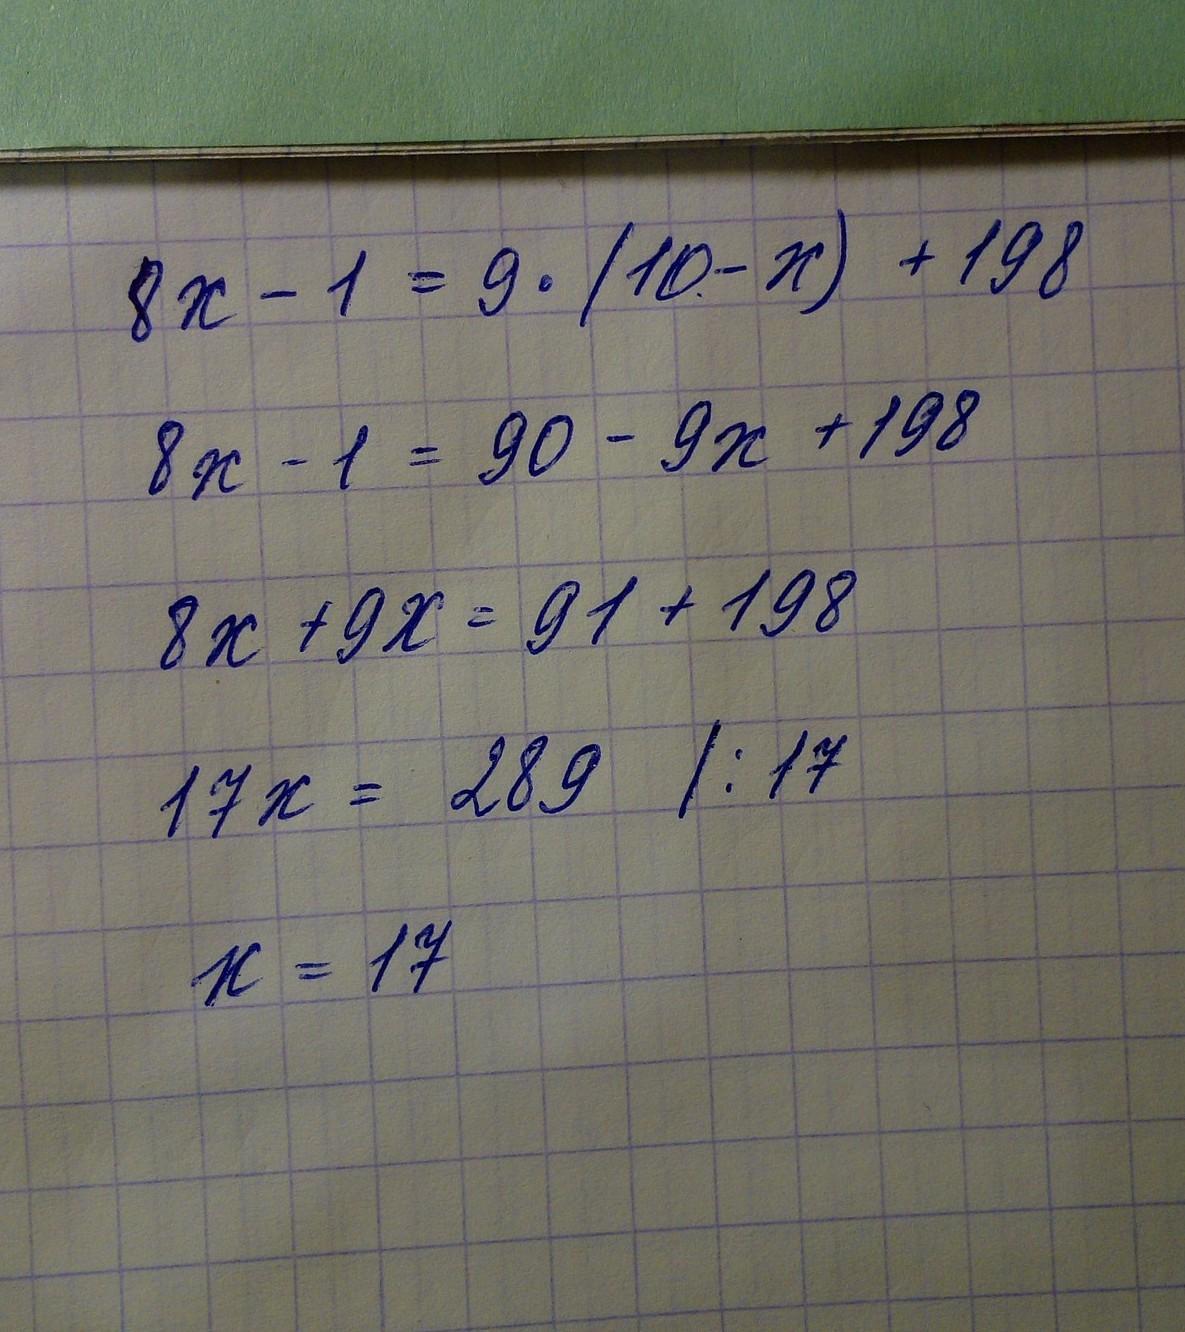 8x - 1 = 9 · (10 - x) + 198
8x - 1 = 90 - 9x + 198
8x + 9x = 91 + 198
17x = 289 |: 17
x = 17